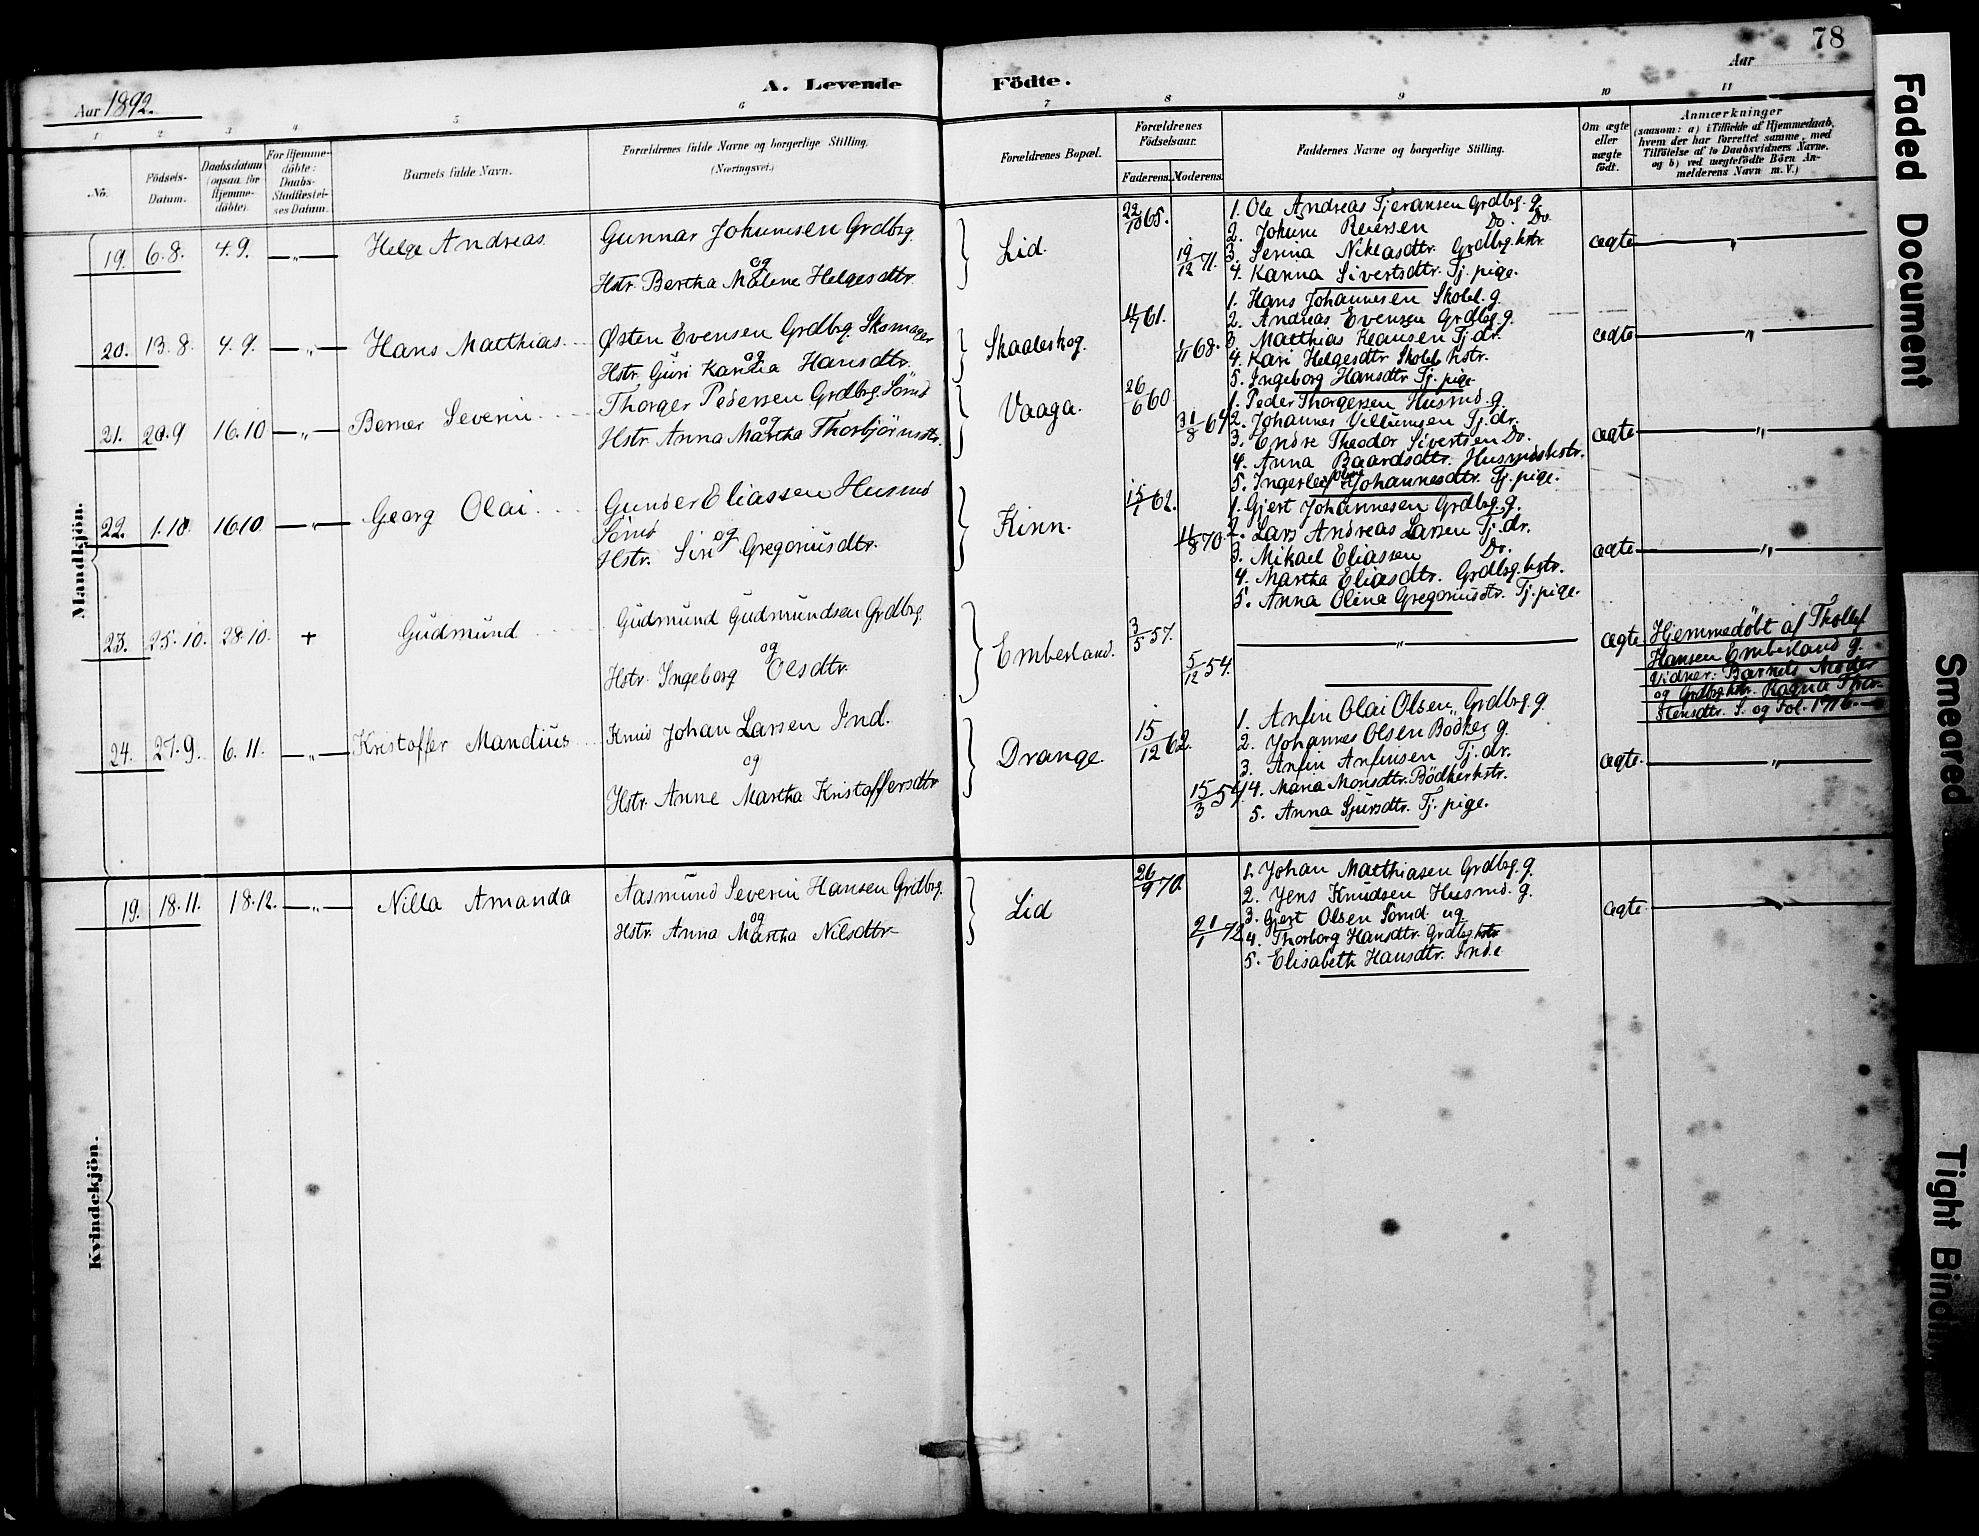 78
Aar 1892.
A. Levende Födte.
Aar
1 2 3 4 5 6 7 8 9 10 11
No.
Födsels-Datum.
Daabsdatum (ogsaa for Hjemme-döbte).
For Hjemme-döbte: Daabs-Stadfæstel-ses Datum.
Barnets fulde Navn.
Forældrenes fulde Navne og borgerlige Stilling. (Næringsvei.)
Forældrenes Bopæl.
Forældrenes Födselsaar.
Faderens. Moderens.
Faddernes Navne og borgerlige Stilling.
Om ægte eller uægte födt.
Anmærkninger
(saasom: a) i Tilfælde af Hjemmedaab, hvem der har forrettet samme, med Tilföielse af to Daabsvidners Navne, og b) ved uægtefödte Börn Anmelderens Navn m. V.)
Mandkjön.
19. 6.8. 4.9. —„— Helge Andreas
Gunnar Johannesen Grdbrg.
og
Hstr. Bertha Malene Helgesdtr.
Lid.
22/10 65.
19/12 71.
1. Ole Andreas Tjeransen Grdbrg. g.
2. Johune Reiersen Do. Do.
3. Serina Niklasdtr. Grdbrg. hstr.
4. Karina Sivertsdtr. Tj. pige.
ægte „
20. 13.8. 4.9. —„— Hans Matthias
Østen Evensen Grdbrg. Skomager
og
Hstr. Guri Karina Hansdtr.
Skaaleskog.
4/7 61.
68.
1. Hans Johannesen Skolel. g.
2. Andreas Evensen Grdbrg. g.
3. Matthias Hansen Tj. dr.
4. Kari Helgesdtr Skolel. hstr.
5. Ingeborg Hansdtr Tj. pige
ægte „
21. 20.9 16.10 —„— Berner Severin
Thorger Pedersen Grdbrg. Sömd
og
Hstr. Anna Martha Thorbjörnsdtr.
Vaaga.
26/6 60
31/8 64
1. Peder Thorgersen Husmd. g.
2. Johannes Villumsen Tj. dr.
3. Endre Theodor Sivertsen Do.
4. Anna Baardsdtr. Husmdshstr.
5. Ingerleif Johannesdtr. Tj. pige.
ægte „
22. 1.10 16.10 —„— Georg Olai
Gunder Eliassen Husmd
Sömd
og
Hstr. Siri Gregoriusdtr.
Kinn.
15/1 62.
11/8 70
1. Gjert Johannesen Grdbrg. g.
2. Lars Andreas Larsen Tj. dr.
3. Mikael Eliassen Do.
4. Martha Eliasdtr. Grdbrg. hstr.
5. Anna Olina Gregoriusdtr. Tj. pige.
ægte „
23. 25.10. 28.10. + Gudmund
Gudmund Gudmundsen Grdbrg.
og
Hstr. Ingeborg Olesdtr.
Emberland.
3/5 57.
5/12 54.
„
ægte
Hjemmedöbt af Thollef
Hansen Emberland g.
Vidner: Barnets Moder
og Grdbrg. hstr. Ragna Thor-
stensdtr. S. og Fol. 171 b.
24. 27.9. 6.11. —„— Kristoffer Mandius
Knud Johan Larsen Ind.
og
Hstr. Anne Martha Kristoffersdtr
Drange.
15/12 62.
15/3 54.
1. Anfin Olai Olsen, Grdbrg. g.
2. Johannes Olsen Bödker g.
3. Anfin Anfinsen Tj. dr.
4. Maria Monsdtr. Bödkerhstr.
5. Anna Sjursdtr. Tj. pige.
ægte. „
Kvindekjön.
19. 18.11. 18.12. —„— Nilla Amanda
Aasmund Severin Hansen Grdbrg.
og
Hstr. Anna Martha Nilsdtr.
Lid
26/9 70.
21/1 72
1. Johan Matthiasen Grdbrg. g.
2. Jens Knudsen Husmd. g.
3. Gjert Olsen Sömd ug
4. Thorborg Hansdtr. Grdbrg. hstr
5. Elisabeth Hansdtr. Inde
ægte „
Faded Document
Smeared
Tight Binding